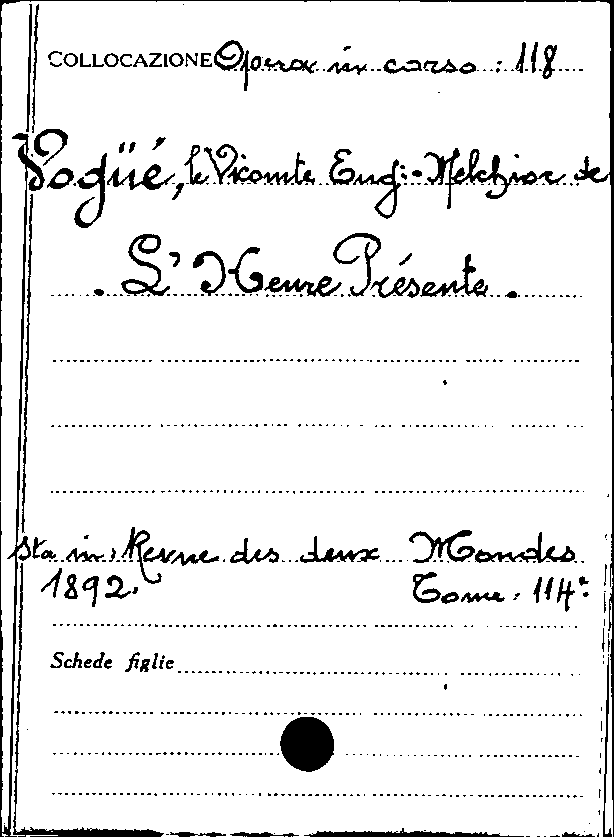 COLLOCAZIONE Opera in corso : 118
Vogüé, le Vicomte Eug:-Melchior de
. L'Heure Présente .
sta in: Revue des deux Mondes
1892. Tome. 114°:
Schede figlie